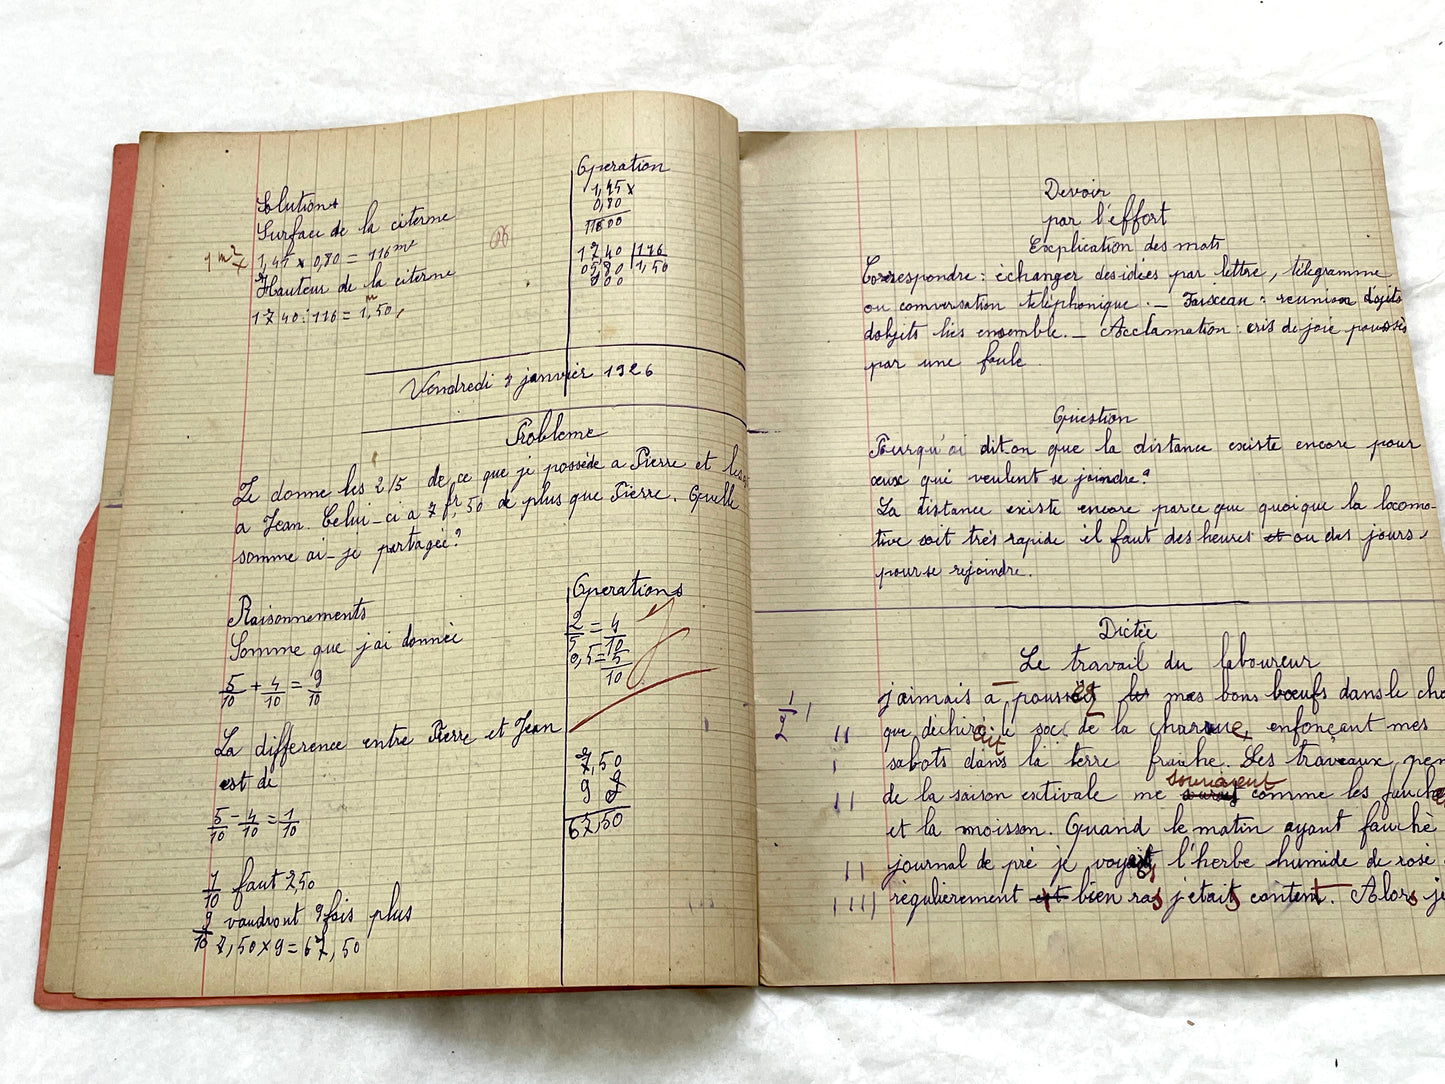 Solutions
Surface de la citerne
1 m²
1,45 x 0,80 = 116 m²
Hauteur de la citerne
1740 : 116 = 1,50
m
Opération
1,45 x
0,80
11600
1740 | 116
0580 | 1,50
000
Vendredi janvier 1926
Problème
Je donne les 2/5 de ce que je possède a Pierre et les
a Jean. Celui-ci a 7 fr, 50 de plus que Pierre. Quelle
somme ai-je partagée?
Raisonnements
Somme que j'ai donnée
5/10 + 4/10 = 9/10
La différence entre Pierre et Jean
est de
5/10 - 4/10 = 1/10
1/10 faut 7,50
9/10 vaudront 9 fois plus
7,50 x 9 = 67,50
Opérations
2/5 = 4/10
0,5 = 5/10
7,50
9 9
67,50
Devoir
par l'effort
Explication des mots
Correspondre : échanger des idées par lettre, télégramme
ou conversation téléphonique. _ Faisceau : reunion d'ojits
dobjits liés ensemble. _ Acclamation : cris de joie poussés
par une foule.
Question
Pourqu'oi dit on que la distance existe encore pour
ceux qui veulent se joindre?
La distance existe encore parce que quoique la locomo-
tive soit très rapide il faut des heures et ou des jours,
pour se rejoindre.
Dictée
Le travail du laboureur
1/2
jaimais à les mes bons bœufs dans le
que déchirait le soc de la charrue, enfonçant mes
sabots dans la terre fraîche. Les travaux
de la saison estivale me souriaient comme les
et la moisson. Quand le matin ayant fauché
journal de pré je voyais l'herbe humide de rosé
régulièrement et bien ras j'étais content. Alors je